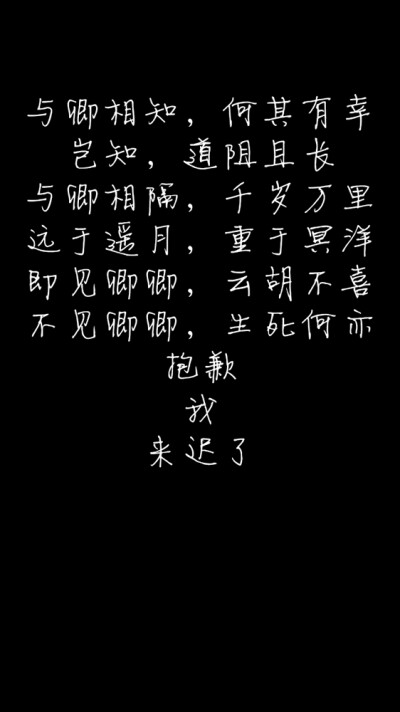 与卿相知，何其有幸
岂知，道阻且长
与卿相隔，千岁万里
远于遥月，重于冥洋
即见卿卿，云胡不喜
不见卿卿，生死何亦
抱歉
我
来迟了